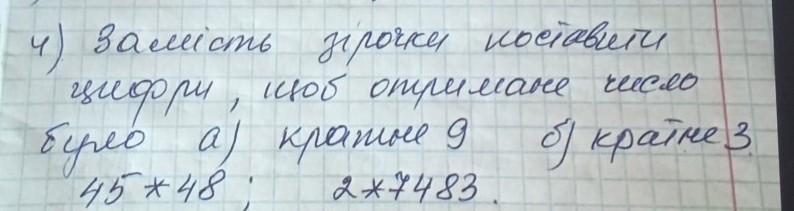 4) Замість зірочки поставити
цифри, щоб отримане число
було а) кратне 9 б) кратне 3
45*48; 2*7483.